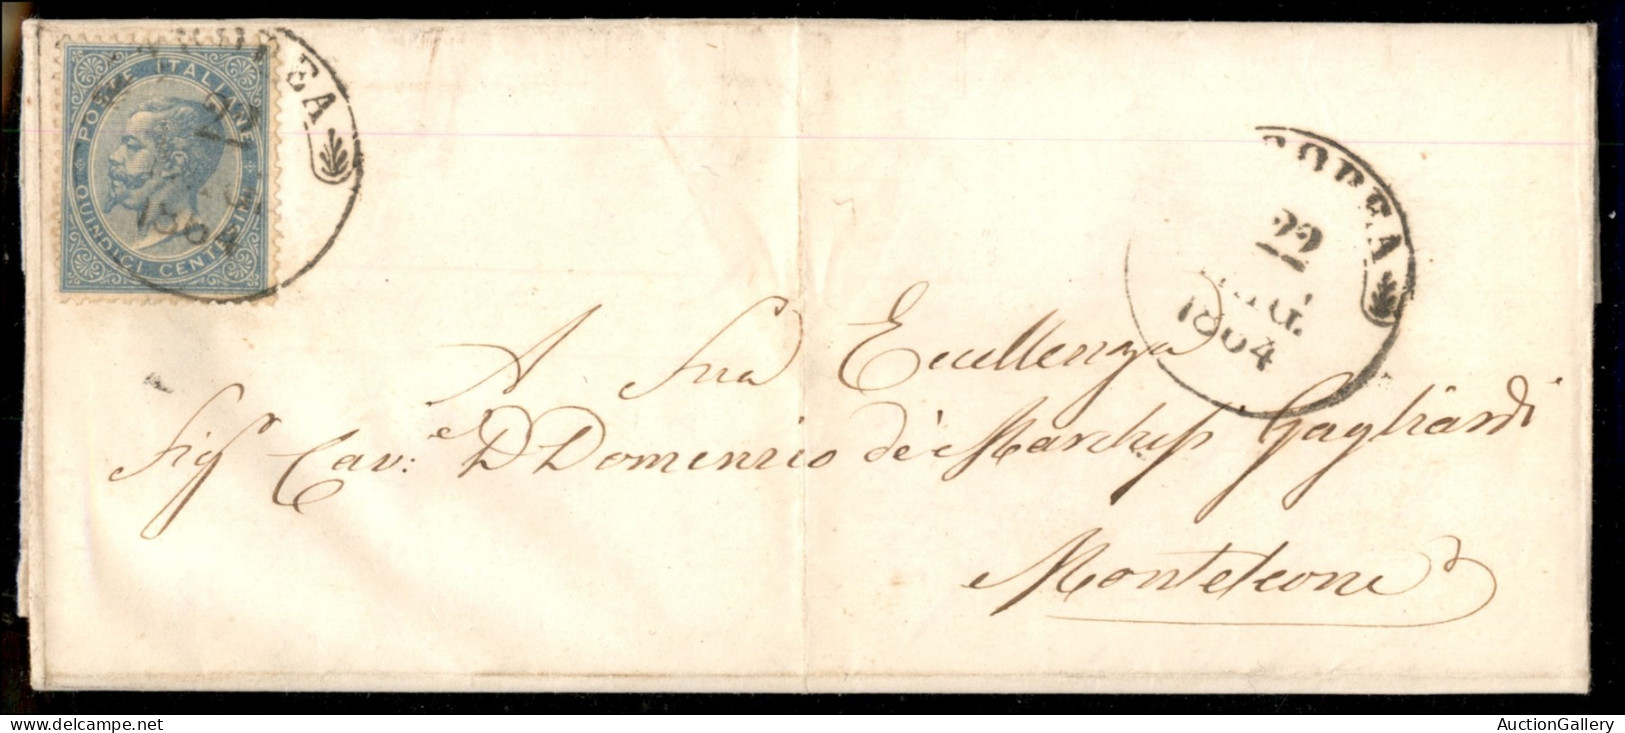 POSTE ITALIANE
QUINDICI CENTESIMI
1864
22
1864
A Sua Eccellenza
Sigr Cav:e D Domenico de' Marchesi Gagliardi
Monteleone
AuctionGallery